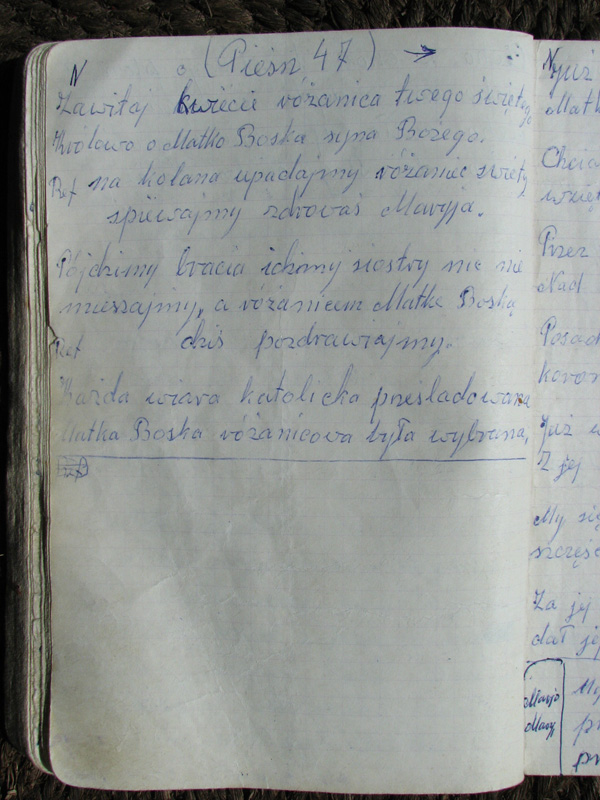 N (Pieśń 47) →
Zawitaj kwiecie różanica twego świętego
Królowo o Matko Boska syna Bożego.
Ref na kolana upadajmy różaniec święty
śpiewajmy zdrowaś Maryja.
Pójdzimy bracia i siostry nic nie
mieszajmy, a różańicem Matkę Boską
Ref dziś pozdrawiajmy.
Każda wiara katolicka prześladowana
Matka Boska różańicowa była wybrana,
Ref
N Już
Matk
Chcia
wzię
Przez
Nad
Posad
koron
Już w
Z jej
My się
szczęś
Za jej
dał je
Maryjo
Mary
My
pr
pr